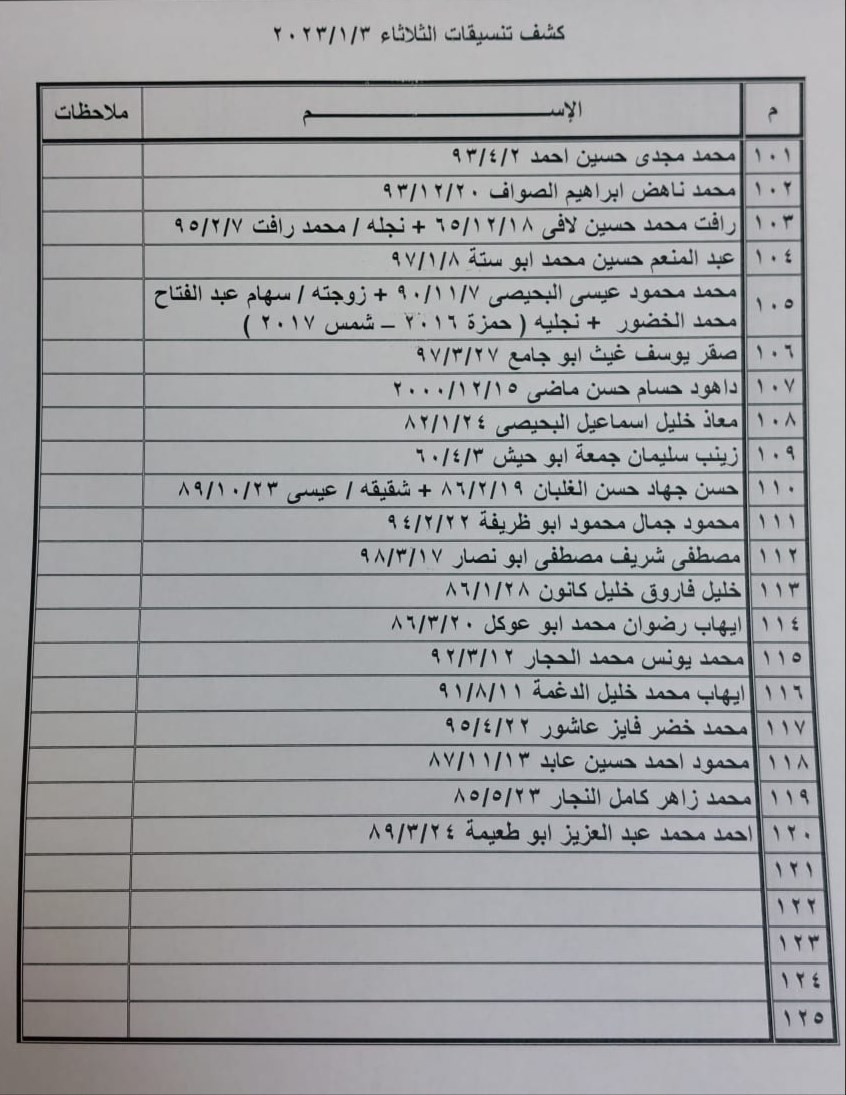 كشف تنسيقات الثلاثاء ٢٠٢٣/١/٣
م الإســـــــــــــــم ملاحظات
١٠١ محمد مجدى حسين احمد ٩٣/٤/٢
١٠٢ محمد ناهض ابراهيم الصواف ٩٣/١٢/٢٠
١٠٣ رافت محمد حسين لافى ٦٥/١٢/١٨ + نجله / محمد رافت ٩٥/٢/٧
١٠٤ عبد المنعم حسين محمد ابو ستة ٩٧/١/٨
١٠٥ محمد محمود عيسى البحيصى ٩٠/١١/٧ + زوجته / سهام عبد الفتاح
محمد الخضور + نجليه ( حمزة ٢٠١٦ – شمس ٢٠١٧ )
١٠٦ صقر يوسف غيث ابو جامع ٩٧/٣/٢٧
١٠٧ داهود حسام حسن ماضى ٢٠٠٠/١٢/١٥
١٠٨ معاذ خليل اسماعيل البحيصى ٨٢/١/٢٤
١٠٩ زينب سليمان جمعة ابو حيش ٦٠/٤/٣
١١٠ حسن جهاد حسن الغلبان ٨٦/٢/١٩ + شقيقه / عيسى ٨٩/١٠/٢٣
١١١ محمود جمال محمود ابو ظريفة ٩٤/٢/٢٢
١١٢ مصطفى شريف مصطفى ابو نصار ٩٨/٣/١٧
١١٣ خليل فاروق خليل كانون ٨٦/١/٢٨
١١٤ ايهاب رضوان محمد ابو عوكل ٨٦/٣/٢٠
١١٥ محمد يونس محمد الحجار ٩٢/٣/١٢
١١٦ ايهاب محمد خليل الدغمة ٩١/٨/١١
١١٧ محمد خضر فايز عاشور ٩٥/٤/٢٢
١١٨ محمود احمد حسين عابد ٨٧/١١/١٣
١١٩ محمد زاهر كامل النجار ٨٥/٥/٢٣
١٢٠ احمد محمد عبد العزيز ابو طعيمة ٨٩/٣/٢٤
١٢١
١٢٢
١٢٣
١٢٤
١٢٥